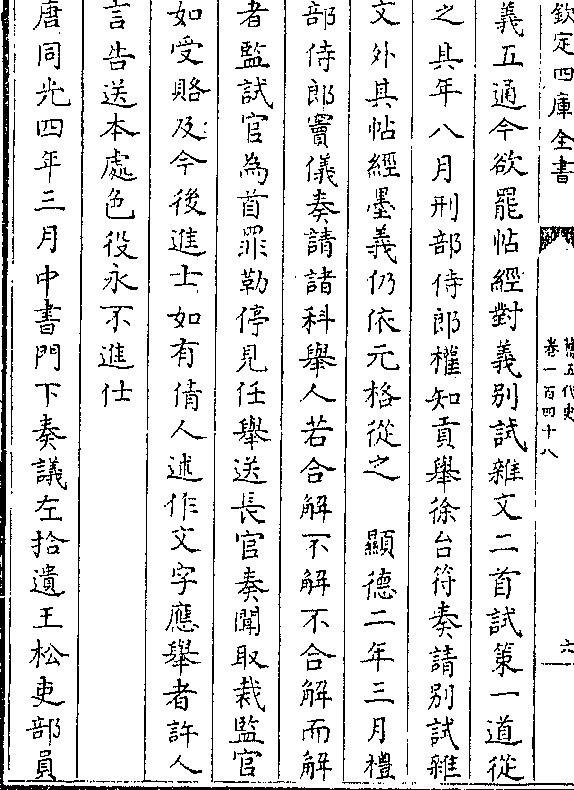 欽定四庫全書
舊五代史
卷一百四十八
六
義五通今欲罷帖經對義別試雜文二首試策一道從
之其年八月刑部侍郎權知貢舉徐台符奏請別試雜
文外其帖經墨義仍依元格從之　顯德二年三月禮
部侍郎竇儀奏請諸科舉人若合解不解不合解而解
者監試官為首罪勒停見任舉送長官奏聞取裁監官
如受賂及今後進士如有倩人述作文字應舉者許人
言告送本處色役永不進仕
唐同光四年三月中書門下奏議左拾遺王松吏部員